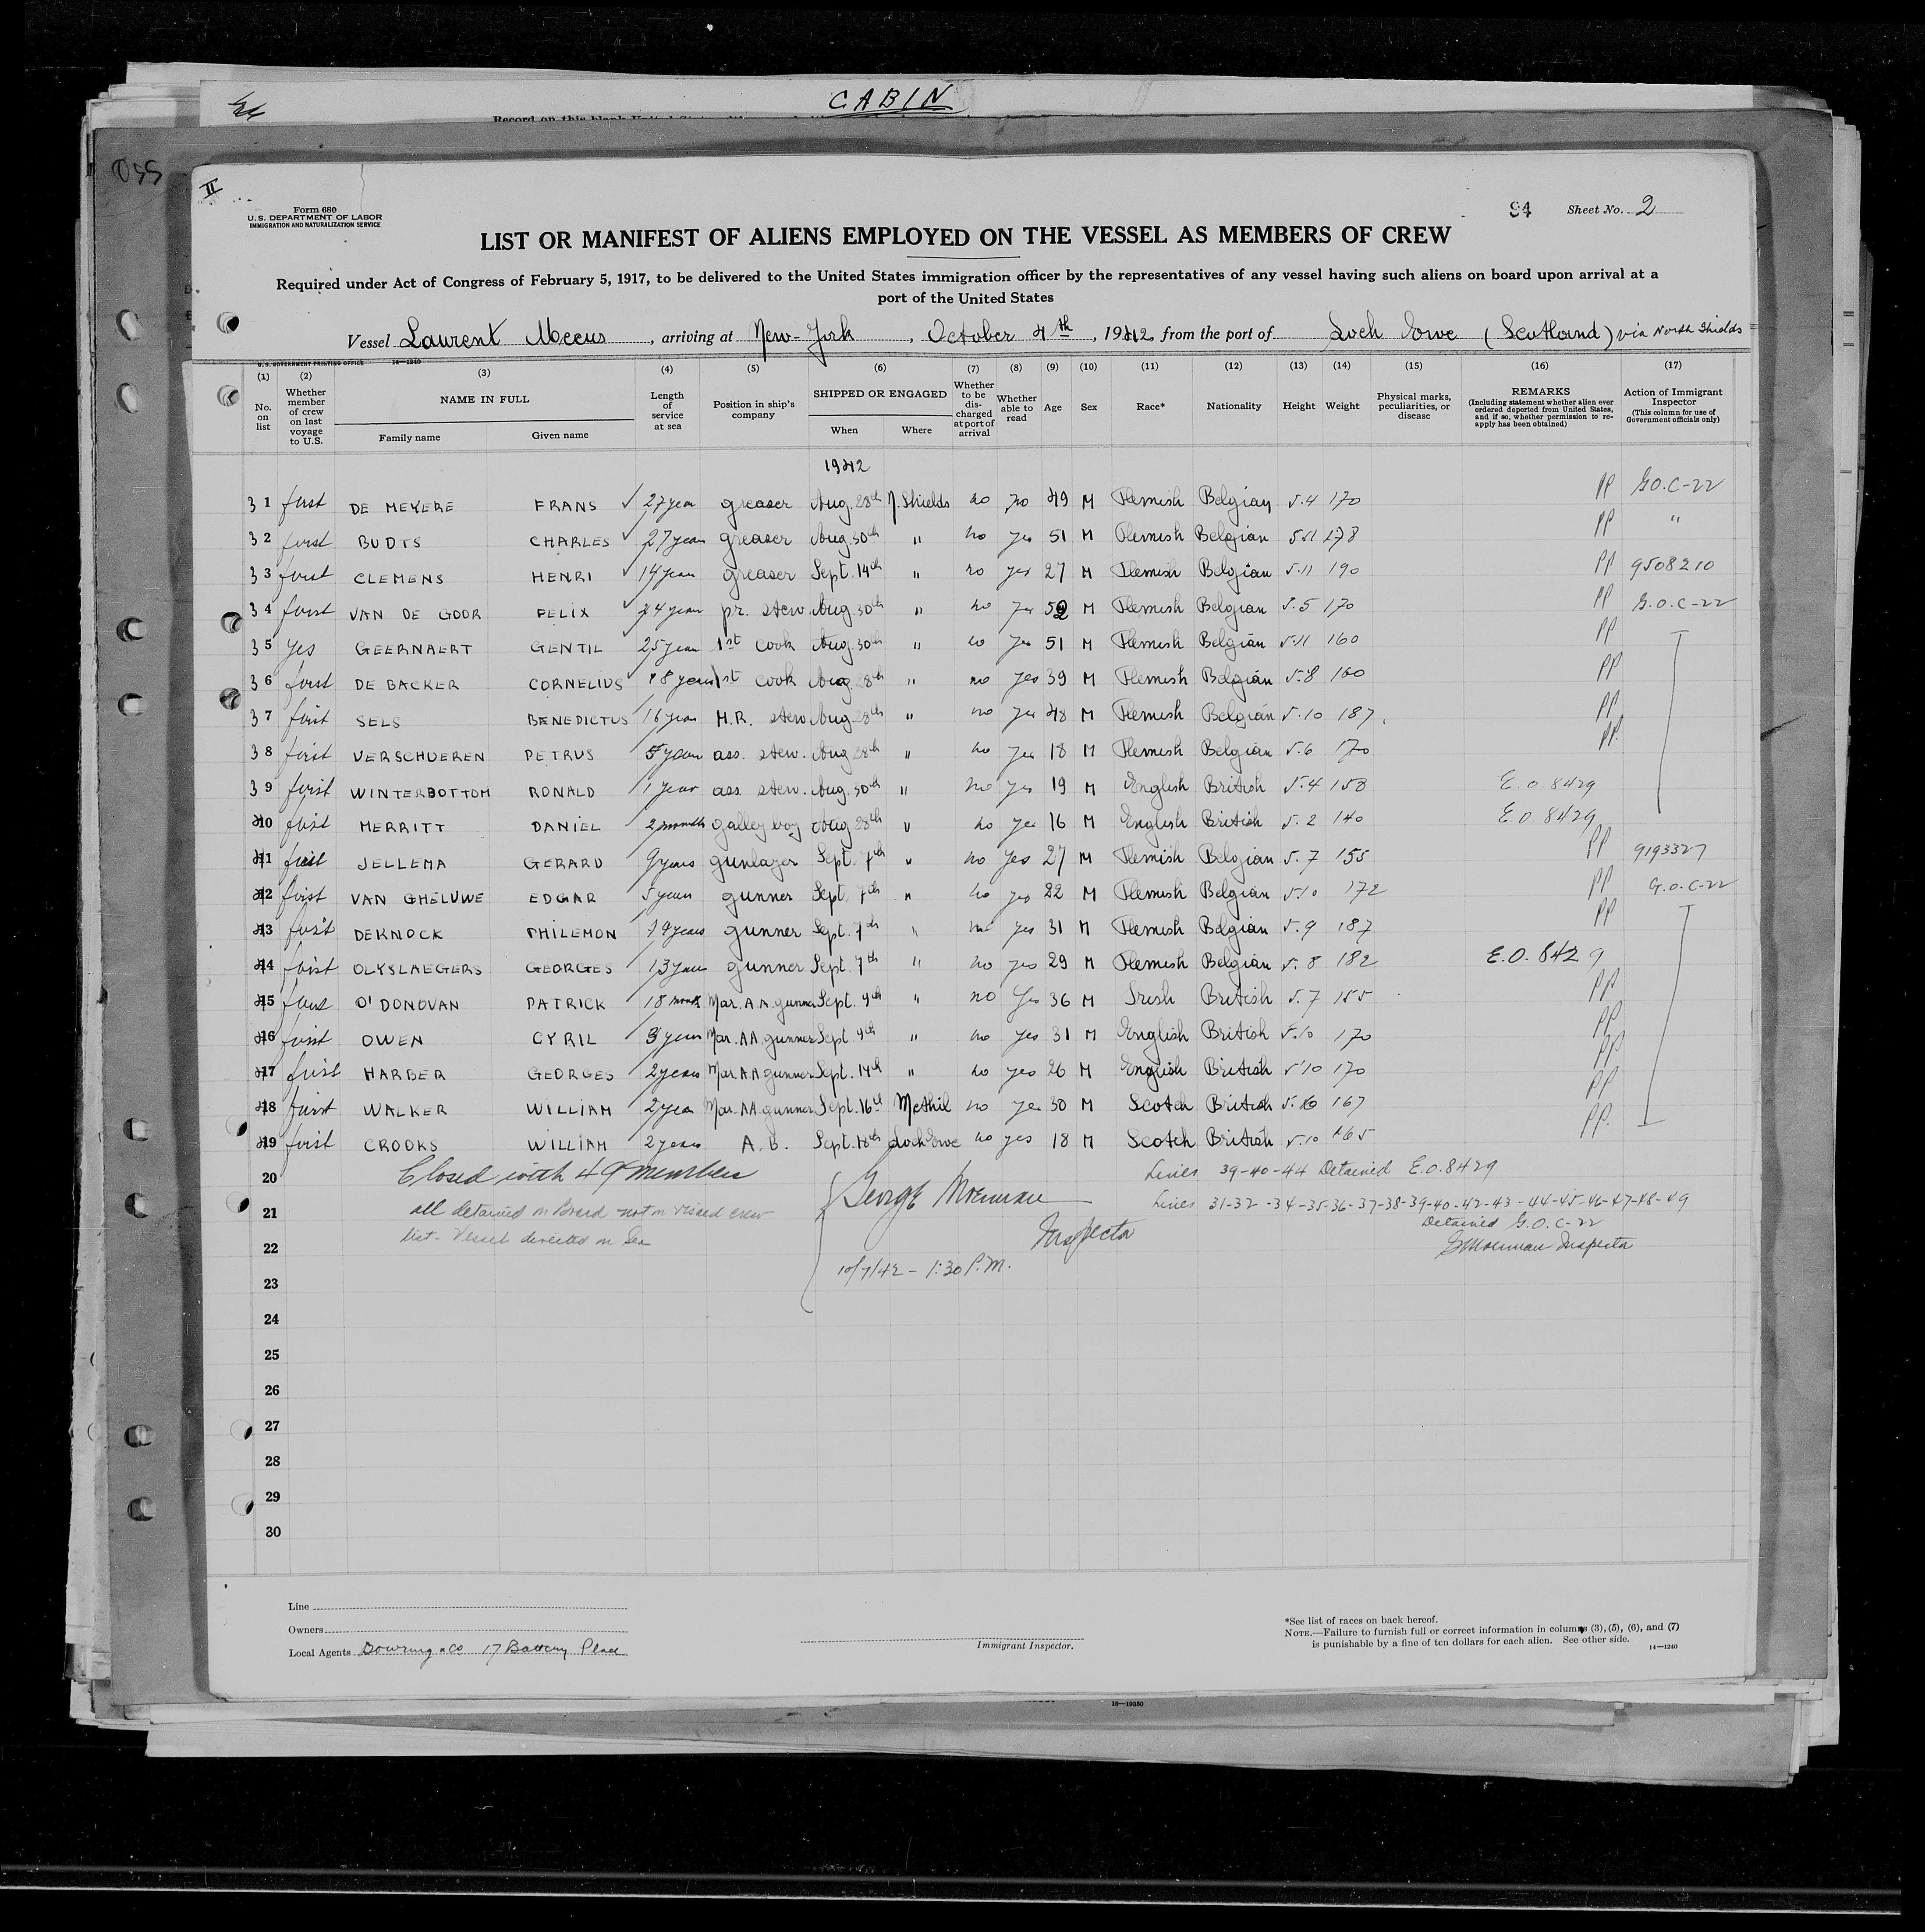 CABIN
Record on this blank United States
II
Form 680
U.S. DEPARTMENT OF LABOR
IMMIGRATION AND NATURALIZATION SERVICE
94 Sheet No. 2
LIST OR MANIFEST OF ALIENS EMPLOYED ON THE VESSEL AS MEMBERS OF CREW
Required under Act of Congress of February 5, 1917, to be delivered to the United States immigration officer by the representatives of any vessel having such aliens on board upon arrival at a
port of the United States
Vessel Laurent Meeus, arriving at New-York, October 4th, 1942, from the port of Loch Ewe (Scotland) via North Shields
U.S. GOVERNMENT PRINTING OFFICE 14—1240
(1) No. on list
(2) Whether member of crew on last voyage to U.S.
(3) NAME IN FULL Family name Given name
(4) Length of service at sea
(5) Position in ship's company
(6) SHIPPED OR ENGAGED When Where
(7) Whether to be discharged at port of arrival
(8) Whether able to read
(9) Age
(10) Sex
(11) Race*
(12) Nationality
(13) Height
(14) Weight
(15) Physical marks, peculiarities, or disease
(16) REMARKS (Including statement whether alien ever ordered deported from United States, and if so, whether permission to reapply has been obtained)
(17) Action of Immigrant Inspector (This column for use of Government officials only)
1942
31 first DE MEYERE FRANS ✓ 27 year greaser Aug. 28th N. Shields no no 49 M Flemish Belgian 5.4 170 PP G.O.C-22
32 first BUDTS CHARLES ✓ 27 years greaser Aug. 30th " no yes 51 M Flemish Belgian 5.11 178 PP "
33 first CLEMENS HENRI ✓ 14 year greaser Sept. 14th " no yes 27 M Flemish Belgian 5.11 190 PP 9508210
34 first VAN DE GOOR FELIX ✓ 24 year pr. stew. Aug. 30th " no yes 52 M Flemish Belgian 5.5 170 PP G.O.C-22
35 yes GEERNAERT GENTIL 25 year 1st cook Aug. 30th " no yes 51 M Flemish Belgian 5.11 160 PP
36 first DE BACKER CORNELIUS 18 years 1st cook Aug. 28th " no yes 39 M Flemish Belgian 5.8 160 PP
37 first SELS BENEDICTUS 16 year M.R. stew. Aug. 28th " no yes 48 M Flemish Belgian 5.10 187 PP
38 first VERSCHUEREN PETRUS 5 years ass. stew. Aug 28th " no yes 18 M Flemish Belgian 5.6 170 PP.
39 first WINTERBOTTOM RONALD 1 year ass. stew. Aug. 30th " no yes 19 M English British 5.4 150 E.O. 8429
40 first MERRITT DANIEL 2 months galley boy Aug 28th " no yes 16 M English British 5.2 140 E.O. 8429
41 first JELLEMA GERARD 9 years gunlayer Sept. 7th " no yes 27 M Flemish Belgian 5.7 155 PP 9193327
42 first VAN GHELUWE EDGAR 5 years gunner Sept. 7th " no yes 22 M Flemish Belgian 5.10 172 PP G.O.C-22
43 first DEKNOCK PHILEMON 14 years gunner Sept. 7th " no yes 31 M Flemish Belgian 5.9 187 PP
44 first OLYSLAEGERS GEORGES 13 years gunner Sept. 7th " no yes 29 M Flemish Belgian 5.8 182 E.O. 8429
45 first O'DONOVAN PATRICK 18 month Mar. A.A. gunner Sept. 9th " no yes 36 M Irish British 5.7 155 PP
46 first OWEN CYRIL 3 years Mar. AA. gunner Sept. 9th " no yes 31 M English British 5.10 170 PP
47 first HARBER GEORGES 2 years Mar. A.A gunner Sept. 14th " no yes 26 M English British 5.10 170 PP
48 first WALKER WILLIAM 2 year Mar. AA. gunner Sept. 16th Methil no yes 30 M Scotch British 5.10 167 PP
49 first CROOKS WILLIAM 2 years A.B. Sept. 18th Loch Ewe no yes 18 M Scotch British 5.10 165 PP.
20 Closed with 49 members Lines 39-40-44 Detained E.O. 8429
21 all detained on Board not on visaed crew George Moernan Lines 31-32-34-35-36-37-38-39-40-42-43-44-45-46-47-48-49
Detained G.O.C-22
22 list - Vessel directed on Sea Inspector Inspector
23 10/7/42 - 1:30 P.M.
24
25
26
27
28
29
30
Line
Owners
Local Agents Bowring & Co 17 Battery Place
Immigrant Inspector.
*See list of races on back hereof.
NOTE.—Failure to furnish full or correct information in columns (3), (5), (6), and (7)
is punishable by a fine of ten dollars for each alien. See other side.
14—1240
16—19350